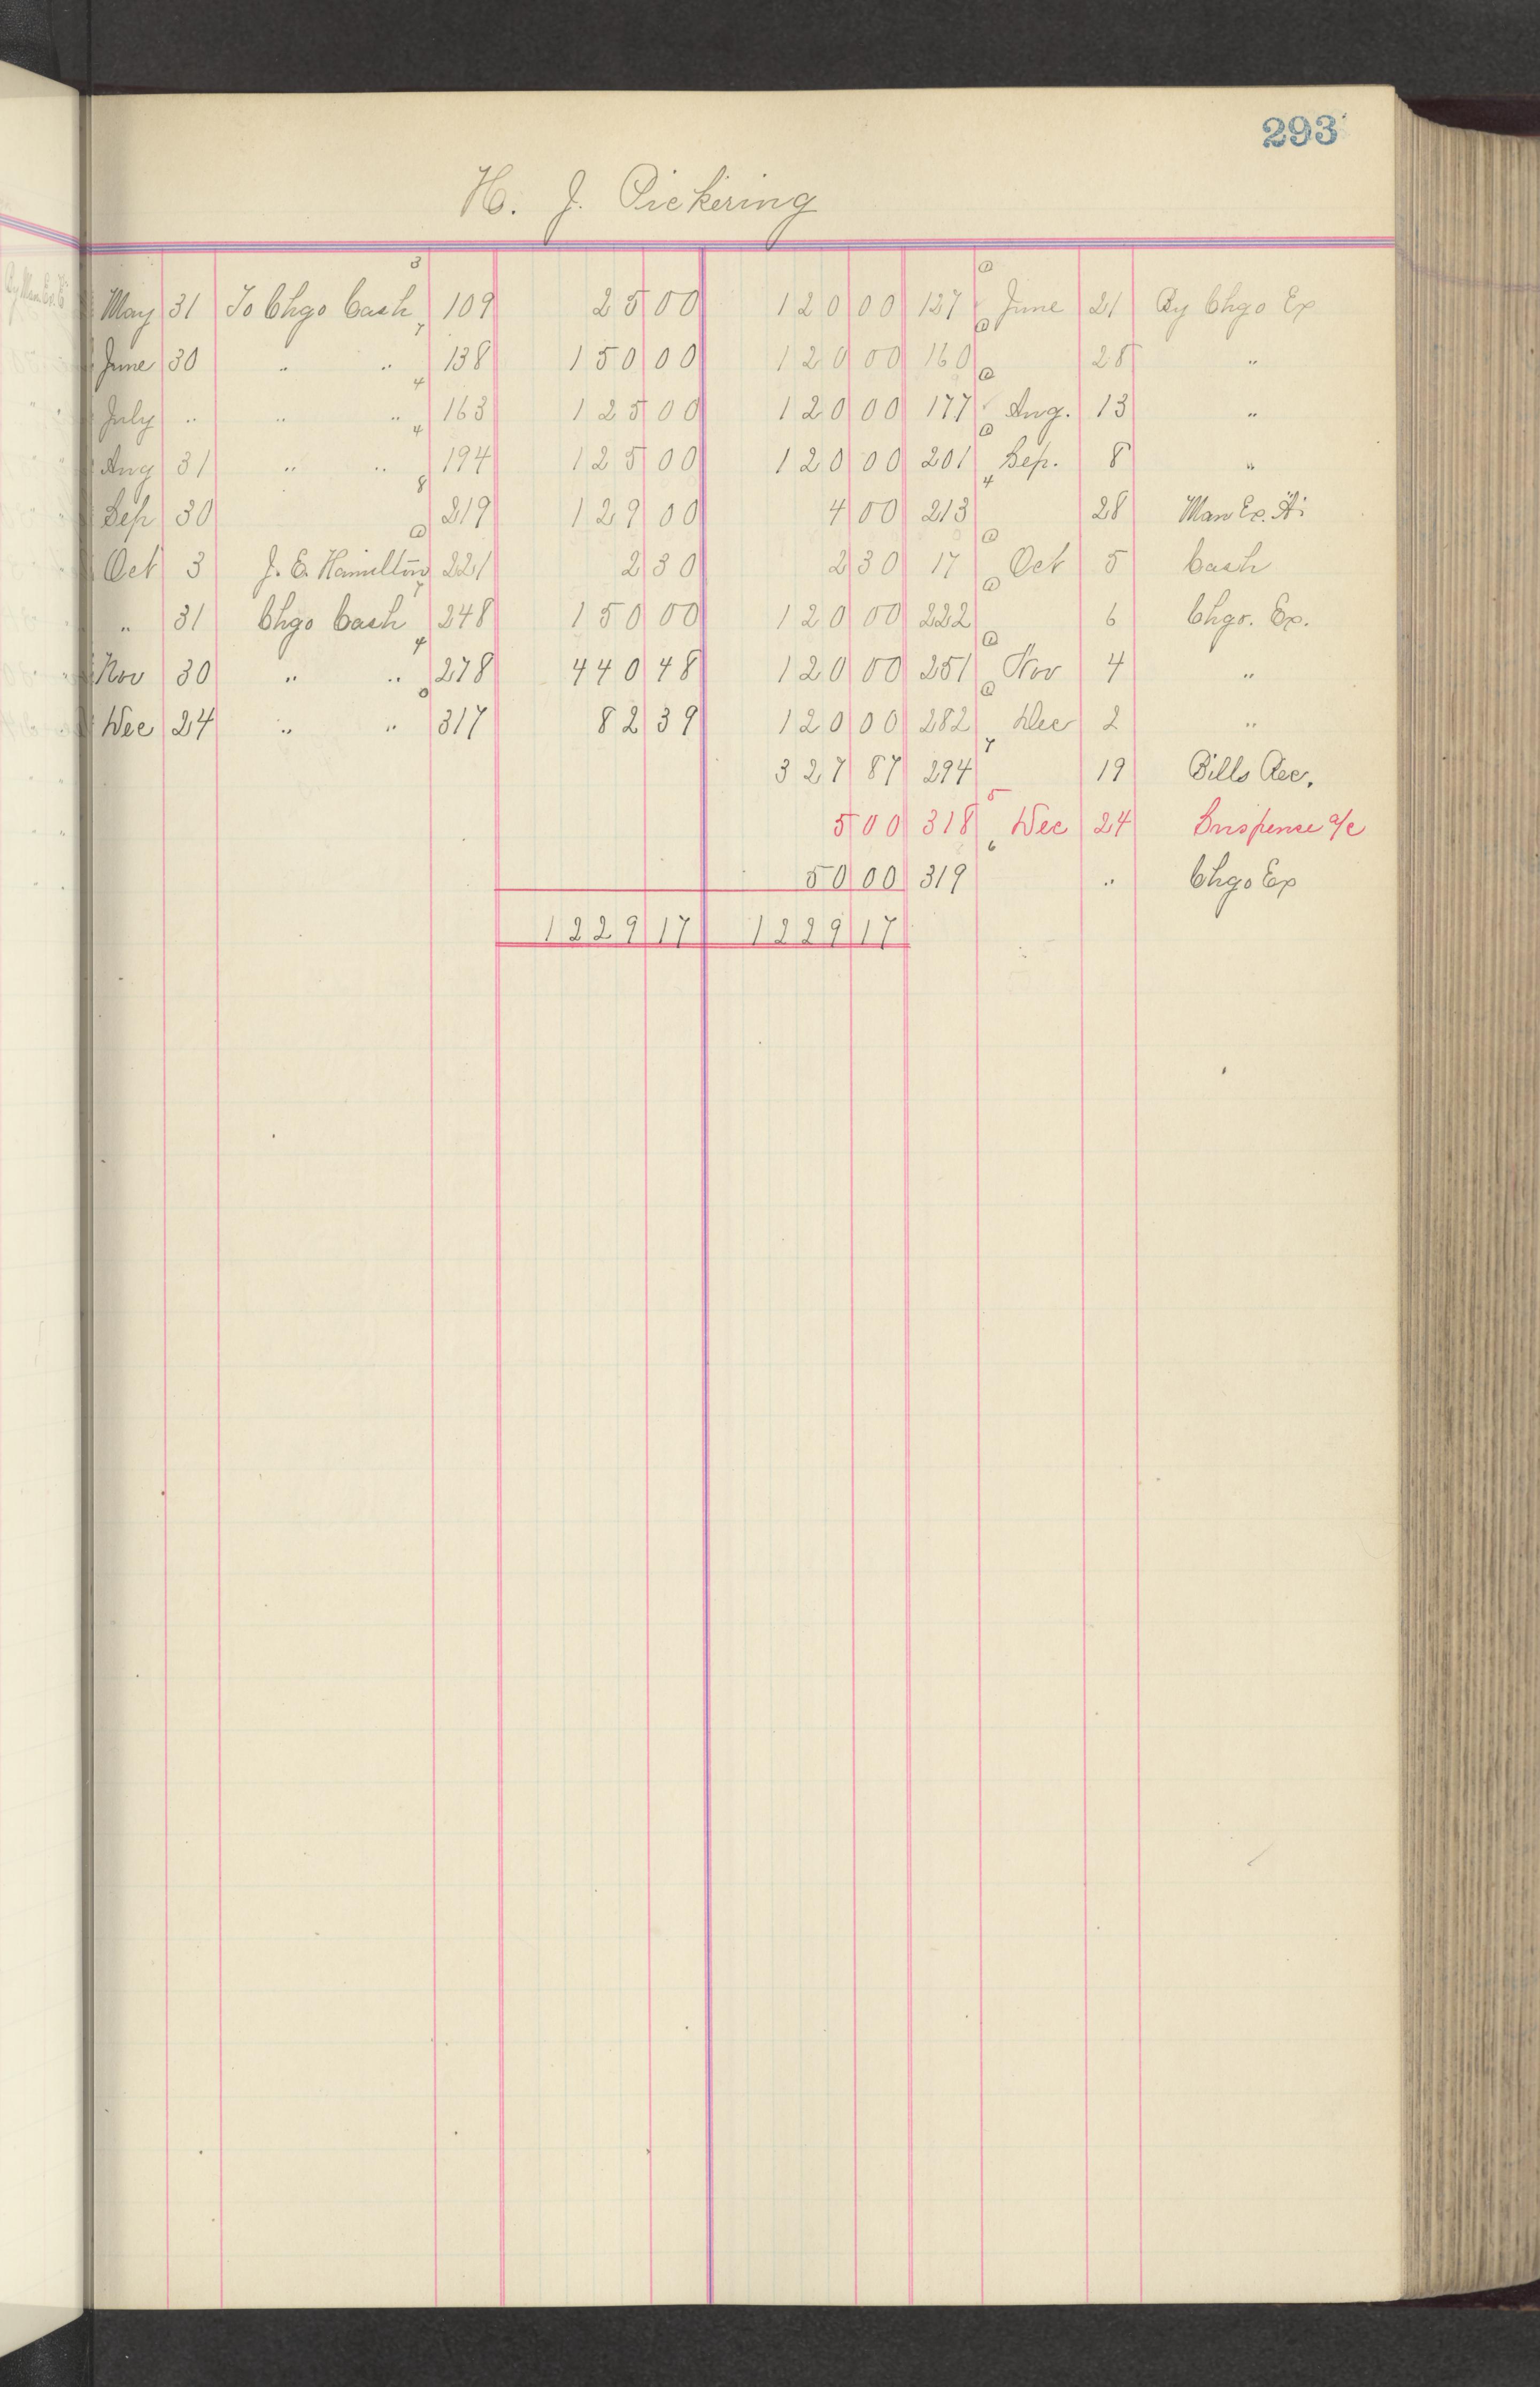 293
H. J. Pickering
3 @
May 31 To Chgo Cash 109 25 00 120 00 137 June 21 By Chgo Ex
7 @
June 30 " " 138 150 00 120 00 160 28 "
4 @
July " " " 163 125 00 120 00 177 Aug. 13 "
4 @
Aug 31 " " 194 125 00 120 00 201 Sep. 8 "
8 4
Sep 30 219 129 00 4 00 213 28 Man Ex. A/c
@ @
Oct 3 J. E. Hamilton 221 2 30 2 30 17 Oct 5 Cash
7 @
" 31 Chgo Cash 248 150 00 120 00 222 6 Chgo. Ex.
4 @
Nov 30 " " 278 440 48 120 00 251 Nov 4 "
0 @
Dec 24 " " 317 82 39 120 00 282 Dec 2 "
7
327 87 294 19 Bills Rec.
5
5 00 318 Dec 24 Suspense a/c
6
50 00 319 " Chgo Ex
1229 17 1229 17